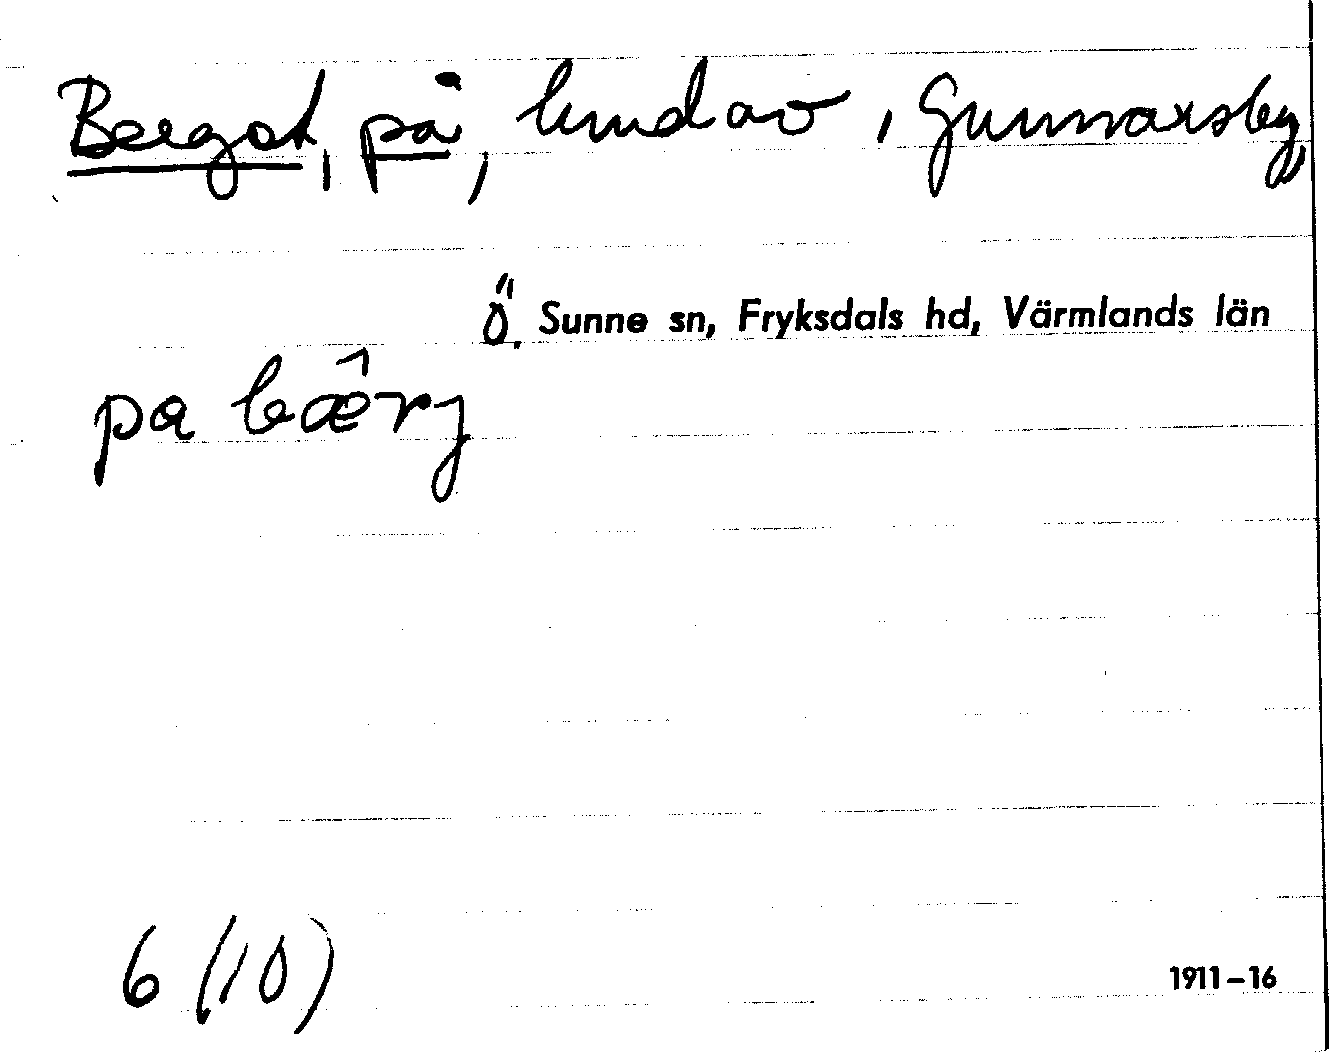 Berget, på, lund av, Gunnarsby,
Ö. Sunne sn, Fryksdals hd, Värmlands län
pa bæ̂rj
6 (10)
1911–16